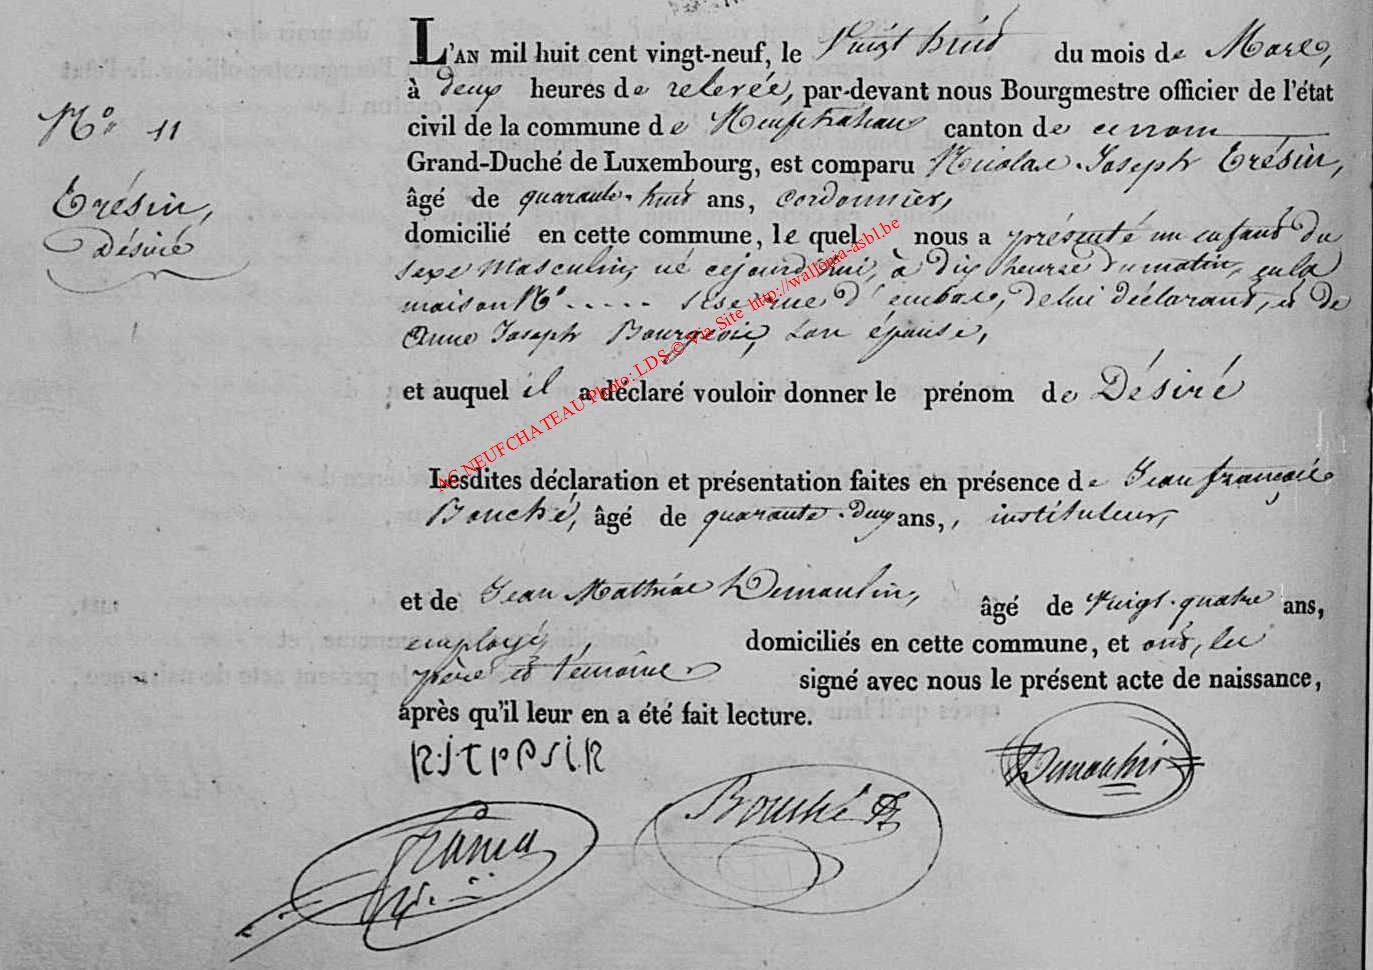 L'AN mil huit cent vingt-neuf, le Vingt huit du mois de Mars,
à deux heures de relevée, par-devant nous Bourgmestre officier de l'état
civil de la commune de Neufchateau canton de ce nom
Grand-Duché de Luxembourg, est comparu Nicolas Joseph Trésin,
âgé de quarante-huit ans, cordonnier,
domicilié en cette commune, le quel nous a présenté un enfant du
sexe Masculin, né cejourd'hui, à dix heures du matin, en la
maison Nº ..... sise rue d', de lui déclarant, et de
Anne Joseph Bourgeois, son épouse,
et auquel il a déclaré vouloir donner le prénom de Désiré
Lesdites déclaration et présentation faites en présence de Jean françois
Bouché, âgé de quarante-deux ans, , instituteur,
et de Jean Mathias Demoulin, âgé de Vingt-quatre ans,
employé, , domiciliés en cette commune, et ont, les
père et témoins signé avec nous le présent acte de naissance,
après qu'il leur en a été fait lecture.
Nº 11
Trésin,
Désiré
AC NEUFCHATEAU Photo: LDS © Via Site http://wallonia-asbl.be
Bouché
Demoulin